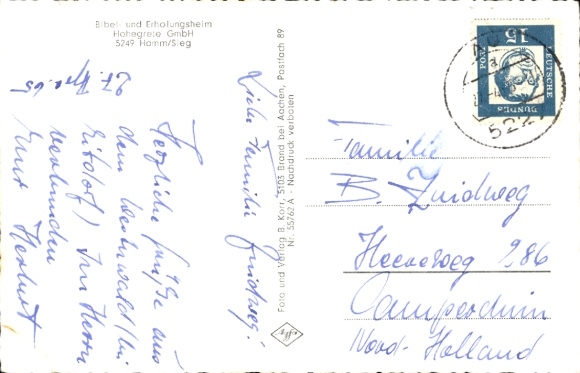 Bibel- und Erholungsheim
Hohegrete GmbH
5249 Hamm/Sieg
27. Apr. 65
Liebe Familie Zuidweg!
Herzliche Grüße aus
dem Westerwald (bei
Eitdorf) Im Herrn
verbunden
Euer Herbert
Foto und Verlag B. Korr, 5103 Brand bei Aachen, Postfach 89
Nr. 55762 A - Nachdruck verboten
15
DEUTSCHE
BUNDES
POST
522
Familie
B. Zuidweg
Heereweg 286
Camperduin
Noord-Holland